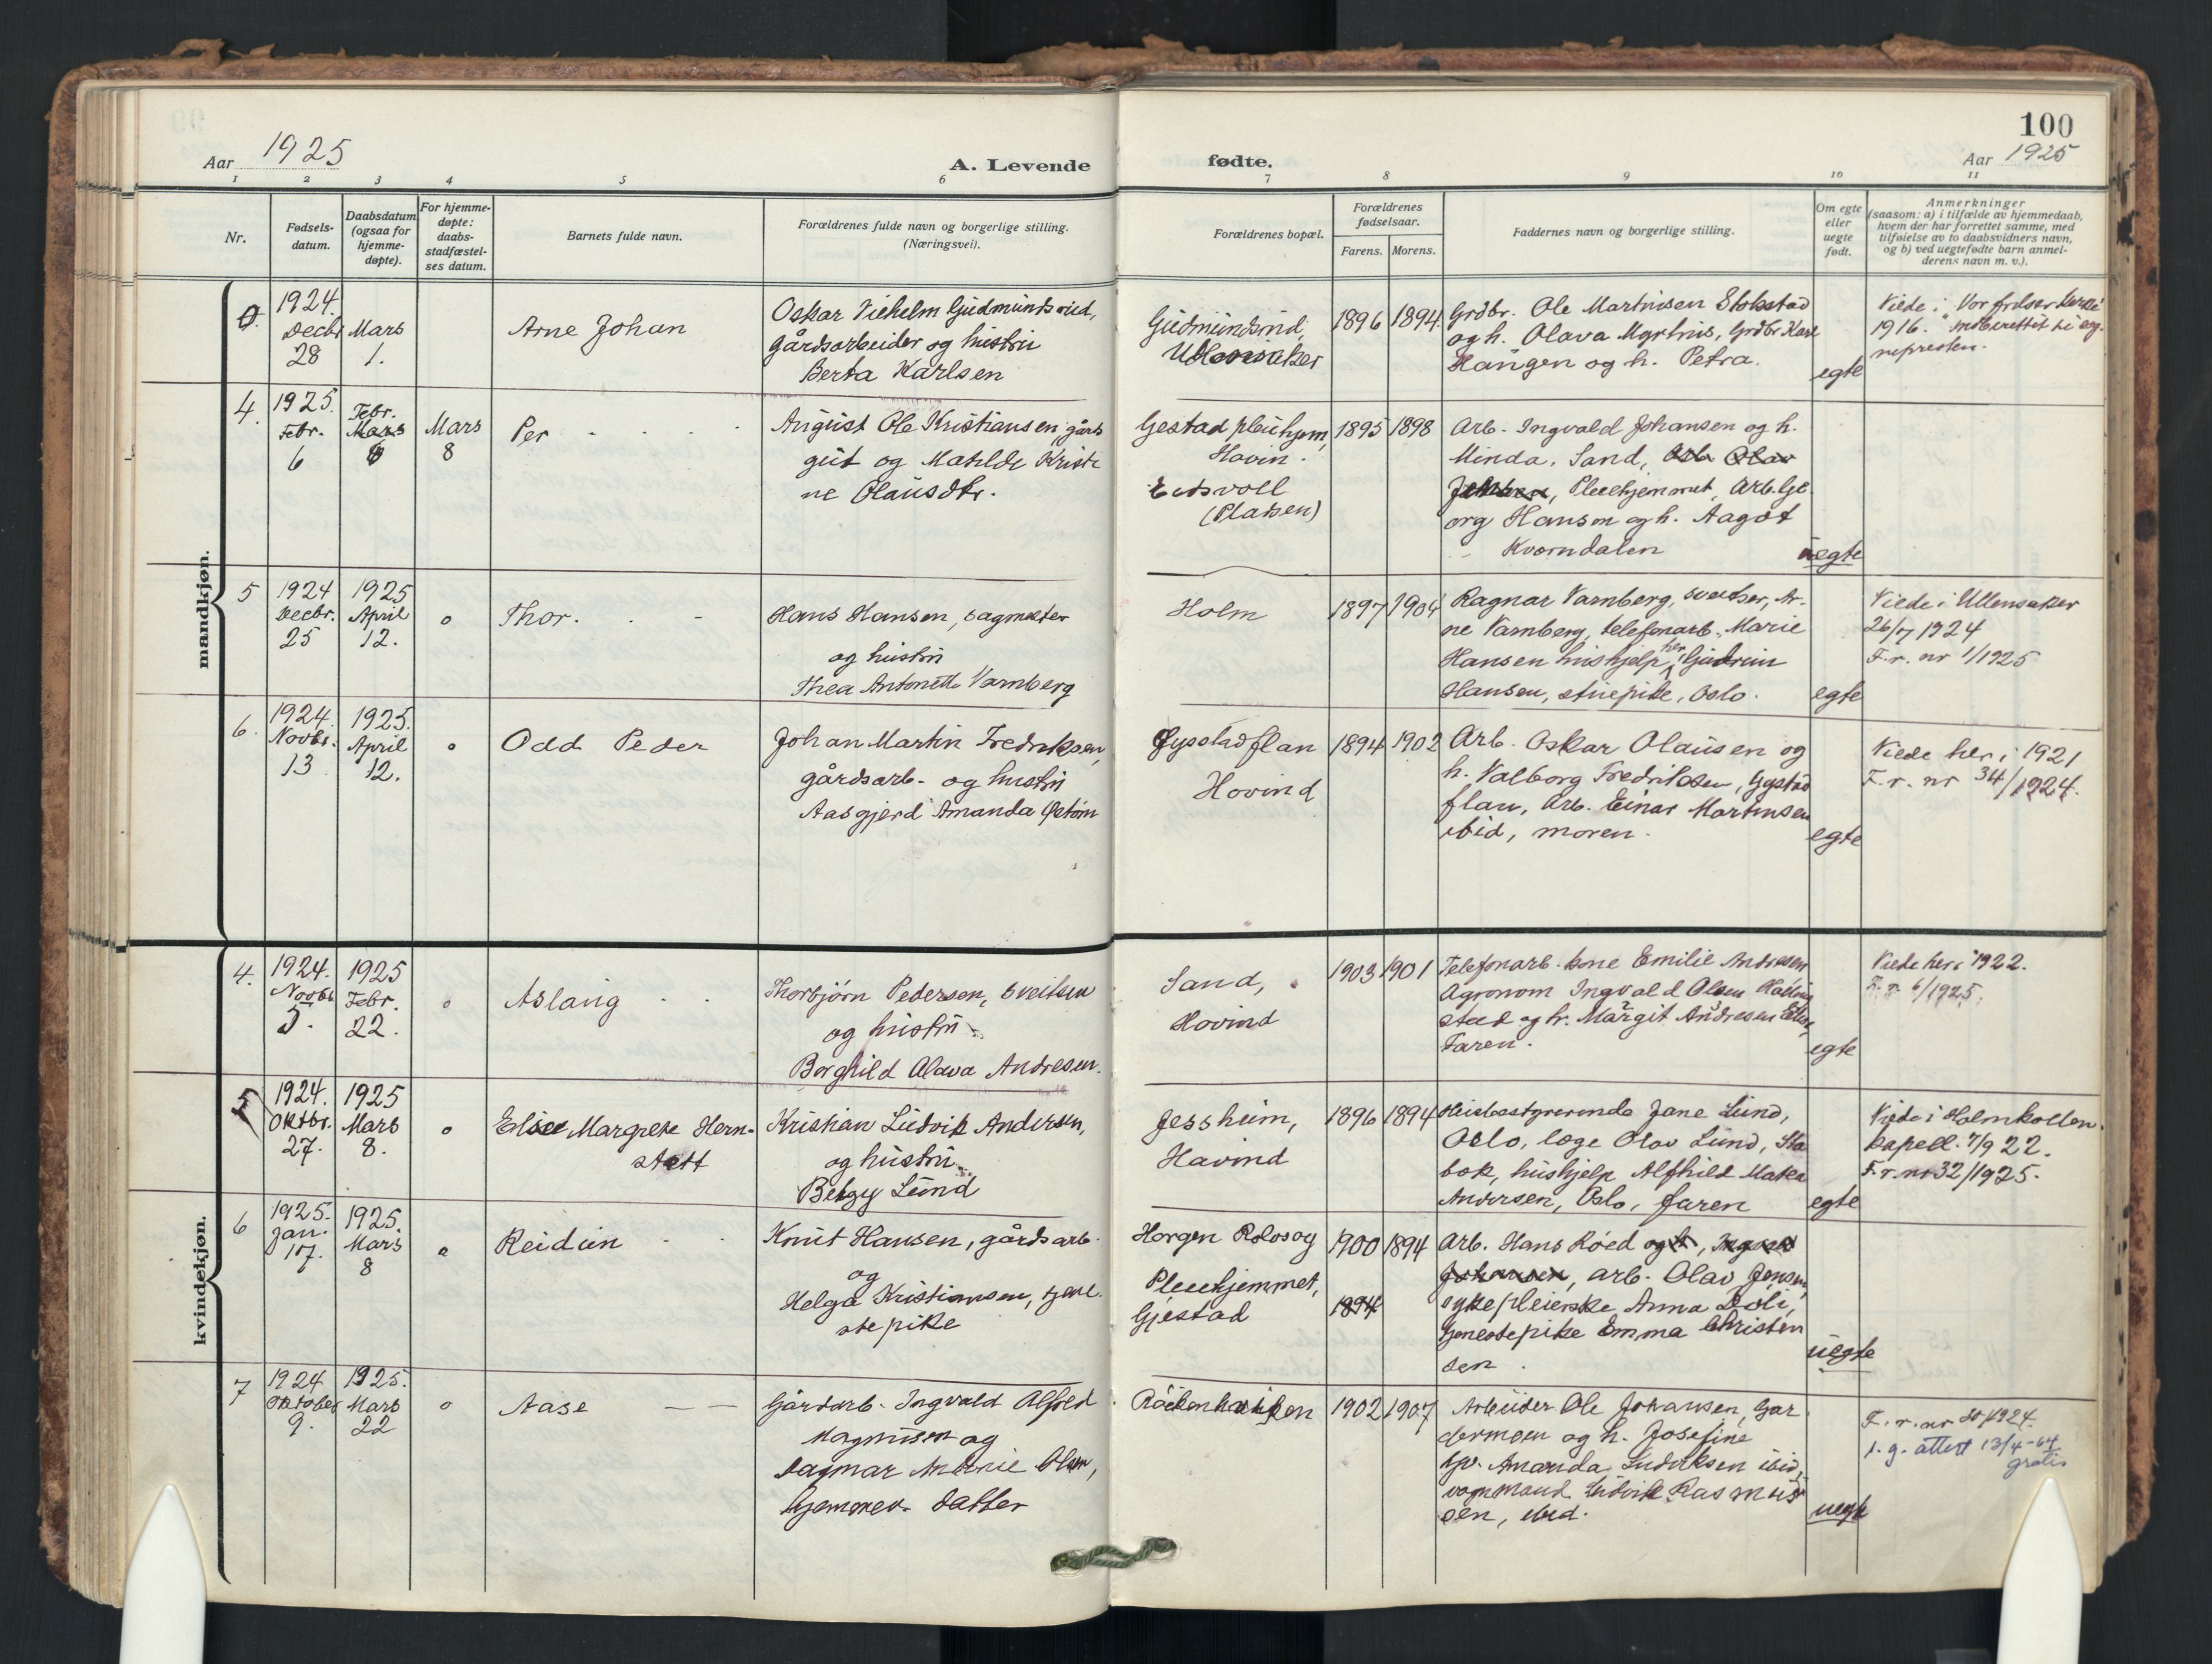 100
Aar 1925
A. Levende
fødte.
Aar 1925
1 2 3 4 5 6 7 8 9 10 11
Nr.
Fødsels-
datum.
Daabsdatum
(ogsaa for
hjemme-
døpte).
For hjemme-
døpte:
daabs-
stadfæstel-
ses datum.
Barnets fulde navn.
Forældrenes fulde navn og borgerlige stilling.
(Næringsvei).
Forældrenes bopæl.
Forældrenes
fødselsaar.
Farens. Morens.
Faddernes navn og borgerlige stilling.
Om egte
eller
uegte
født.
Anmerkninger
(saasom: a) i tilfælde av hjemmedaab,
hvem der har forrettet samme, med
tilføielse av to daabsvidners navn,
og b) ved uegtefødte barn anmel-
derens navn m. v.).
mandkjøn.
0.
1924.
Decbr
28
Mars
1.
Arne Johan
Oskar Vilhelm Gudmundsrud,
gårdsarbeider og hustru
Berta Karlsen
Gudmundsrud,
Ullensaker
1896
1894
Grdbr. Ole Martinsen Stokstad
og h. Olava Mathis, Grdbr. Karl
Haugen og h. Petra.
egte
Viede i Vor frelsers kirke
1916.
4.
1925.
Febr.
6
Febr.
Mars
8
Mars
8
Per
August Ole Kristiansen, gårds
gut og Matilde Kristi
ne Olausdtr.
Gestad pleiehjem,
Hovin.
Eidsvoll
(Platsen)
1895
1898
Arb. Ingvald Johansen og h.
Minda, Sand, Arb. Olav
Jensen, Pleiehjemmet, Arb. Ge
org Hansen og h. Aagot
Kværndalen
uegte
5
1924
Decbr.
25
1925
April
12.
0
Thor.
Hans Hansen, sagmester
og hustru
Thea Antonette Varnberg
Holm
1897
1904
Ragnar Varnberg, sveitser, Ar-
ne Varnberg, telefonarb., Marie
Hansen hushjelp her, Gudrun
Hansen, stuepike, Oslo.
egte
Viede i Ullensaker
26/7 1924
F.r. nr 1/1925
6.
1924.
Novbr.
13
1925.
April
12.
0
Odd Peder
Johan Martin Fredriksen,
gårdsarb. og hustru
Aasgjerd Amanda Østern
Gystadflan
Hovind
1894
1902
Arb. Oskar Olausen og
h. Valborg Fredriksen, Gystad
flan, Arb. Einar Martinsen
ibid, moren.
egte
Viede her i 1921
F.r. nr 34/1924.
kvindekjøn.
4.
1924.
Novbr.
5.
1925
Febr.
22.
0
Aslaug
Thorbjørn Pedersen, sveitser
og hustru
Borghild Olava Andresen.
Sand,
Hovind
1903
1901
Telefonarb. kone Emilie Andresen
Agronom Ingvald Olsen
stad og fr. Margit Andresen
Faren.
egte
Viede her i 1922.
F.r. 6/1925.
5
1924.
Oktbr.
27.
1925
Mars
8.
0
Elsee Margrete Hern-
stett
Kristian Ludvik Andersen,
og hustru
Betzy Lund
Jessheim,
Hovind
1896
1894
Husbestyrerinde Jane Lund,
Oslo, læge Olav Lund, Sta
bek, hushjelp Alfhild
Andersen, Oslo, faren
egte
Viede i Holmkollen
kapell. 7/9 22.
F.r. nr 32/1925.
6
1925.
Jan.
17.
1925.
Mars
8
0
Reidun
Knut Hansen, gårdsarb.
og
Helga Kristiansen, tjene
stepike
Horgen Rolosog
Pleiehjemmet,
Gjestad
1900
1894
1894
Arb. Hans Røed og h, Ingvald
Johansen, arb. Olav Jensen,
sykepleierske Anna Doli,
tjenestepike Emma Christen
sen.
uegte
7
1924
Oktober
9.
1925.
Mars
22
0
Aase
Gårdarb. Ingvald Alfred
Magnusen og
Dagmar Antonie Olsen,
hjemmev. datter
1902
1907
Arbeider Ole Johansen, Gar
dermoen og h. Josefine
Amanda Ludviksen ibid,
vognmand Ludvik Rasmus
sen, ibid.
uegte
F.r. nr 30/1924.
d. g. attest 13/4-64
gratis